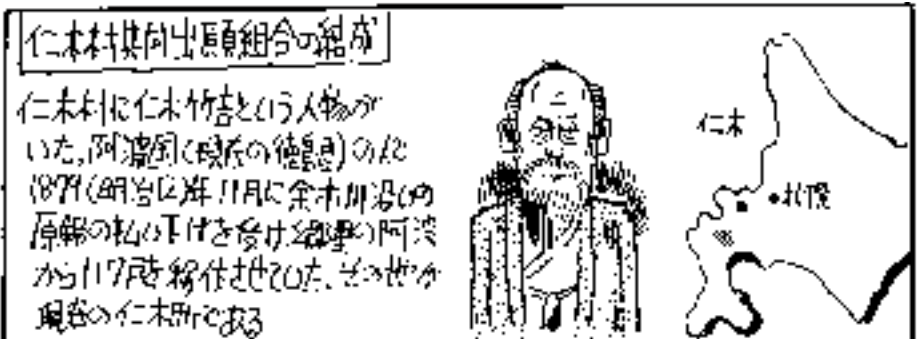 仁木村共同出願組合の結成
仁木村に仁木竹吉という人物が
いた。阿波国(現在の徳島県)の人
1879(明治12)年11月に余市川沿いの
原野の払い下げを受け、郷里の阿波
から117戸を移住させていた。その地が
現在の仁木町である
仁木
札幌